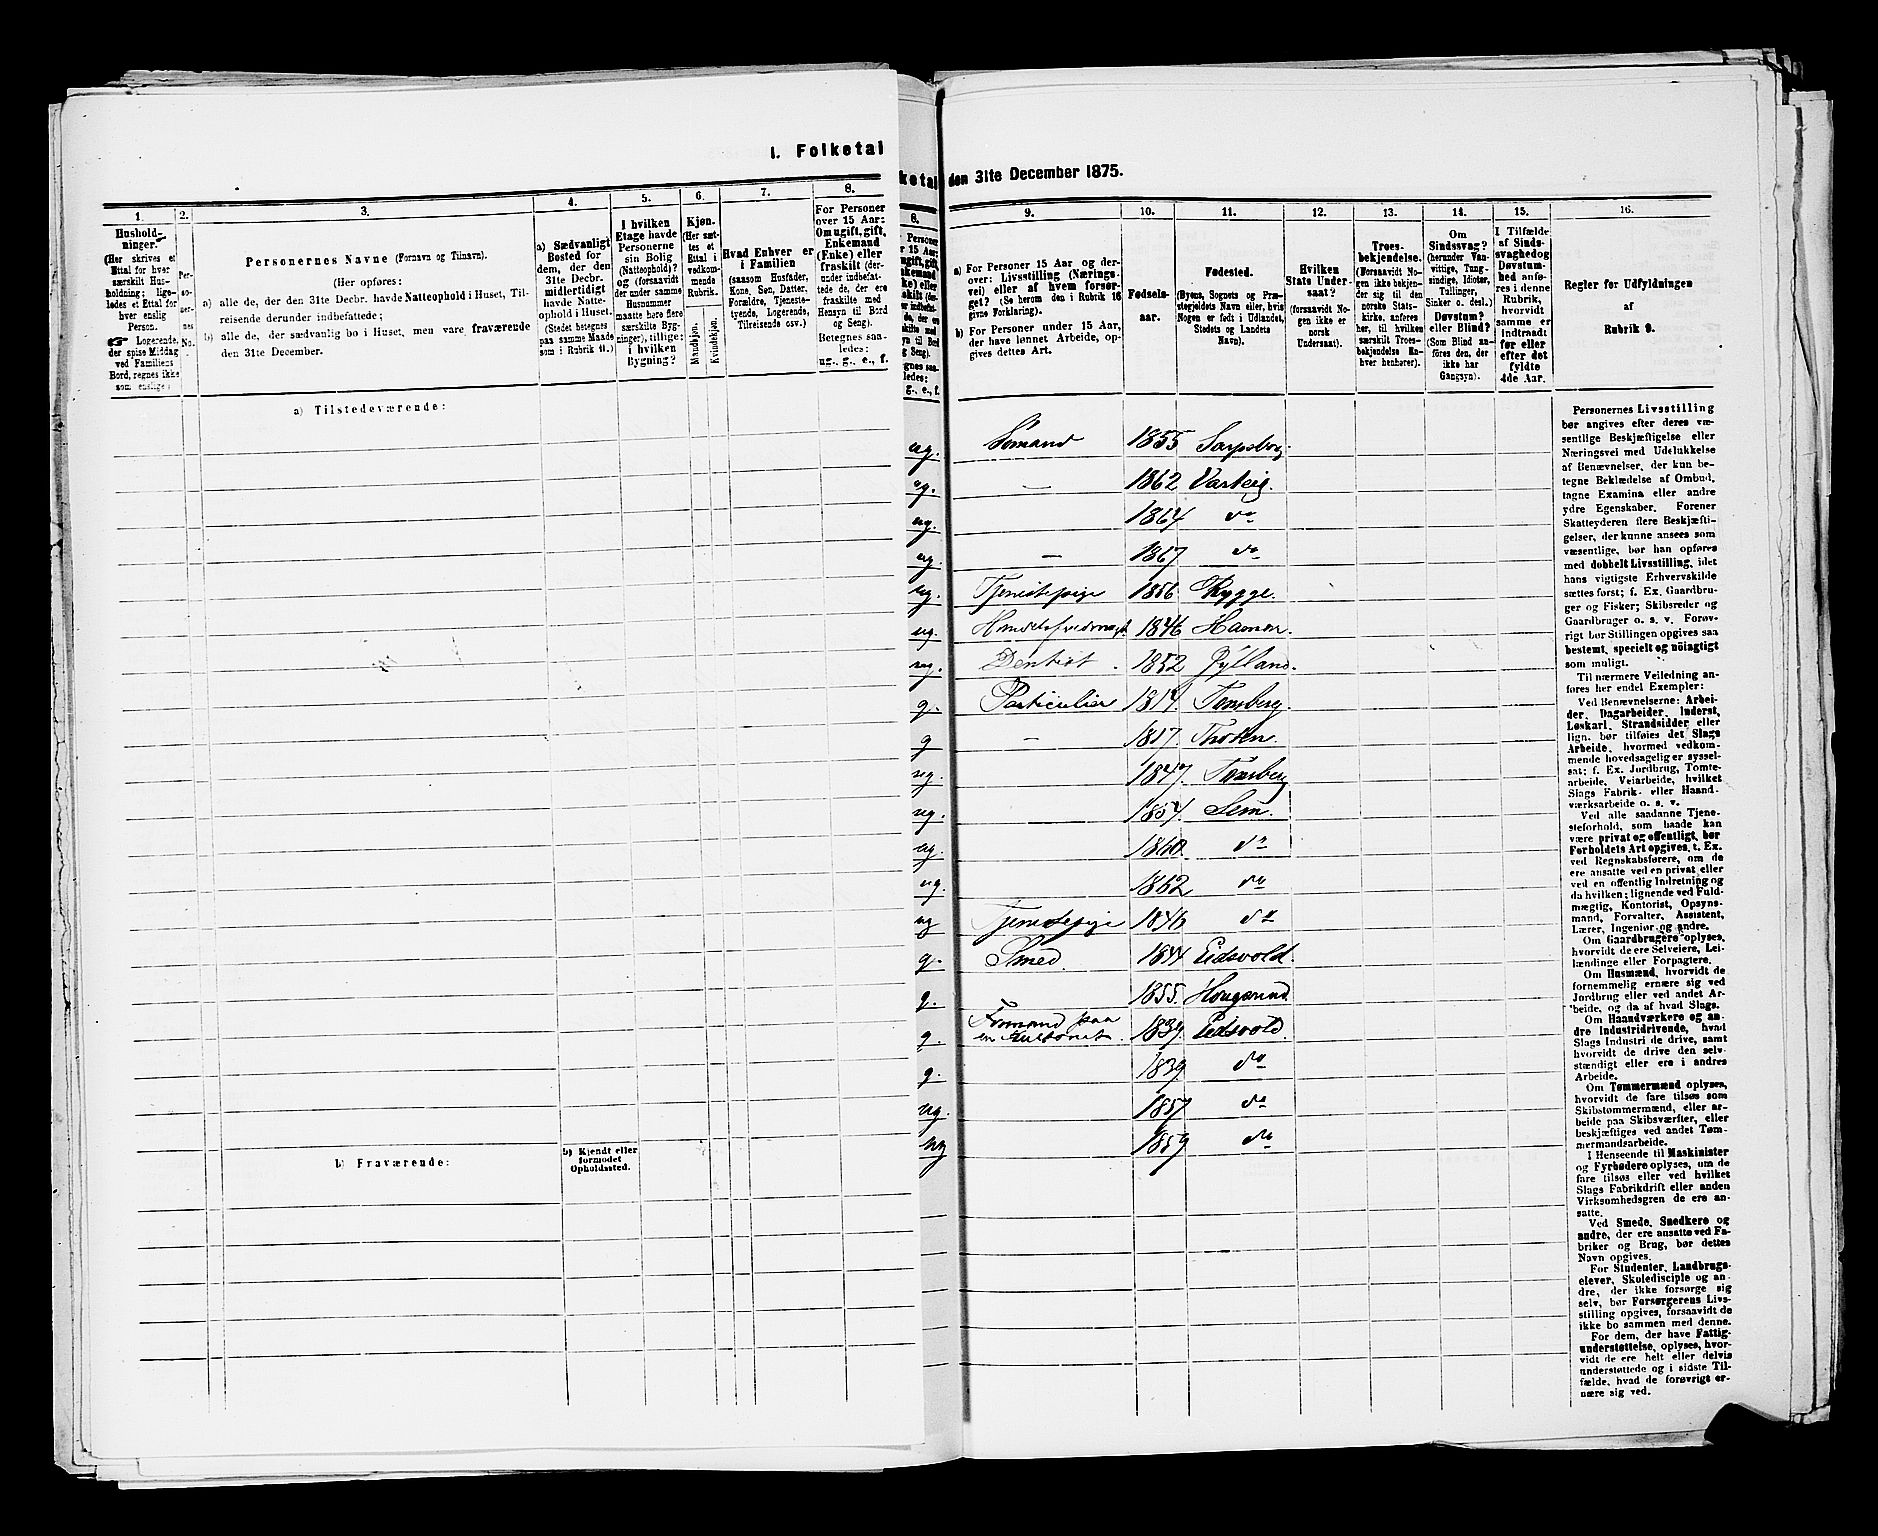 1. Folketal
1. 2. 3. 4. 5. 6. 7. 8.
Hushold-
ninger.
(Her skrives et
Ettal for hver
særskilt Hus-
holdning; lige-
ledes et Ettal for
hver enslig
Person.
Logerende,
der spise Middag
ved Familiens
Bord, regnes ikke
som enslige.)
Per-
so-
ner-
nes
No.
Personernes Navne (Fornavn og Tilnavn).
(Her opføres:
a) alle de, der den 31te Decbr. havde Natteophold i Huset, Til-
reisende derunder indbefattede;
b) alle de, der sædvanlig bo i Huset, men vare fraværende
den 31te December.
a) Sædvanligt
Bosted for
dem, der den
31te Decbr.
midlertidigt
havde Natte-
ophold i Huset.
(Stedet betegnes
paa samme Maade
som i Rubrik 11.)
I hvilken
Etage havde
Personerne
sin Bolig
(Natteophold)?
og (forsaavidt
der under samme
Husnummer
maatte høre flere
særskilte Byg-
ninger), tillige:
i hvilken
Bygning?
Kjøn.
(Her sæt-
tes et
Ettal i
vedkom-
mende
Rubrik.
Mandkjøn.
Kvindekjøn.
Hvad Enhver er
i Familien
(saasom Husfader,
Kone, Søn, Datter,
Forældre, Tjeneste-
tyende, Logerende,
Tilreisende osv.)
For Personer
over 15 Aar:
Om ugift, gift,
Enkemand
(Enke) eller
fraskilt (der-
under indbefat-
tede de, der ere
fraskilte med
Hensyn til Bord
og Seng).
Betegnes saa-
ledes:
ug., g., e., f.
a) Tilstedeværende:
b) Fraværende:
b) Kjendt eller
formodet
Opholdssted.
den 31te December 1875.
8. 9. 10. 11. 12. 13. 14. 15. 16.
a) For Personer 15 Aar og der-
over: Livsstilling (Nærings-
vei) eller af hvem forsør-
get? (Se herom den i Rubrik 16
givne Forklaring).
b) For Personer under 15 Aar,
der have lønnet Arbeide, op-
gives dettes Art.
Fødsels-
aar.
Fødested.
(Byens, Sognets og Præ-
stegjeldets Navn eller, hvis
Nogen er født i Udlandet,
Stedets og Landets
Navn).
Hvilken
Stats Under-
saat?
(forsaavidt No-
gen ikke er
norsk
Undersaat).
Troes-
bekjendelse.
(Forsaavidt No-
gen ikke bekjen-
der sig til den
norske Stats-
kirke, anføres
her, til hvilken
særskilt Troes-
bekjendelse En-
hver henhører).
Om
Sindssvag?
(herunder Van-
vittige, Tung-
sindige, Idioter,
Tullinger,
Sinker o. desl.)
Døvstum?
eller Blind?
(Som Blind an-
føres den, der
ikke har
Gangsyn).
I Tilfælde
af Sinds-
svaghed og
Døvstum-
hed anfø-
res i denne
Rubrik,
hvorvidt
samme er
indtraadt
før eller
efter det
fyldte
4de Aar.
Regler for Udfyldningen
af
Rubrik 9.
ug. Sømand 1855 Sarpsborg.
ug. — 1862 Varteig.
ug. 1864 do
ug. — 1867 do
ug. Tjenestepige 1856 Rygge.
ug. 1846 Hamar.
ug. Dentist. 1852 Jylland.
g. Particulier 1814 Tønsberg.
g — 1817.
ug. 1847. Tønsberg
ug. 1854. Sem.
ug. 1860. do
ug. 1862 do
ug Tjenestepige 1846 do
g. Smed. 1844 Eidsvold.
g. 1855.
g. Formand paa
1834. Eidsvold.
g. 1839 do
ug. 1857 do
ug 1859 do
Personernes Livsstilling
bør angives efter deres væ-
sentlige Beskjæftigelse eller
Næringsvei med Udelukkelse
af Benævnelser, der kun be-
tegne Beklædelse af Ombud,
tagne Examina eller andre
ydre Egenskaber. Forener
Skatteyderen flere Beskjæfti-
gelser, der kunne ansees som
væsentlige, bør han opføres
med dobbelt Livsstilling, idet
hans vigtigste Erhvervskilde
sættes først; f. Ex. Gaardbru-
ger og Fisker; Skibsreder og
Gaardbruger o. s. v. Forøv-
rigt bør Stillingen opgives saa
bestemt, specielt og nöiagtigt
som muligt.
Til nærmere Veiledning an-
føres her endel Exempler:
Ved Benævnelserne: Arbei-
der, Dagarbeider, Inderst,
Løskarl, Strandsidder eller
lign. bør tilføies det Slags
Arbeide, hvormed vedkom-
mende hovedsagelig er syssel-
sat; f. Ex. Jordbrug, Tomte-
arbeide, Veiarbeide, hvilket
Slags Fabrik- eller Haand-
værksarbeide o. s. v.
Ved alle saadanne Tjene-
steforhold, som baade kan
være privat og offentligt, bør
Forholdets Art opgives, t. Ex.
ved Regnskabsførere, om de
ere ansatte ved en privat eller
ved en offentlig Indretning og
da hvilken; lignende ved Fuld-
mægtig, Kontorist, Opsyns-
mand, Forvalter, Assistent,
Lærer, Ingeniør og andre.
Om Gaardbrugere oplyses,
hvorvidt de ere Selveiere, Lei-
lændinge eller Forpagtere.
Om Husmænd, hvorvidt de
fornemmelig ernære sig ved
Jordbrug eller ved andet Ar-
beide, og da af hvad Slags.
Om Haandværkere og an-
dre Industridrivende, hvad
Slags Industri de drive, samt
hvorvidt de drive den selv-
stændigt eller ere i andres
Arbeide.
Om Tømmermænd oplyses,
hvorvidt de fare tilsøs som
Skibstømmermænd, eller ar-
beide paa Skibsværfter, eller
beskjæftiges ved andet Tøm-
mermandsarbeide.
I Henseende til Maskinister
og Fyrbødere oplyses, um de
fare tilsøs eller ved hvilket
Slags Fabrikdrift eller anden
Virksomhedsgren de ere an-
satte.
Ved Smede, Snedkere og
andre, der ere ansatte ved Fa-
briker og Brug, bør dettes
Navn opgives.
For Studenter, Landbrugs-
elever, Skoledisciple og an-
dre, der ikke forsørge sig
selv, bør Forsørgerens Livs-
stilling opgives, forsaavidt de
ikke bo sammen med denne.
For dem, der have Fattig-
understøttelse, oplyses, hvor-
vidt de ere helt eller delvis
understøttede og i sidste Til-
fælde, hvad de forøvrigt er-
nære sig ved.